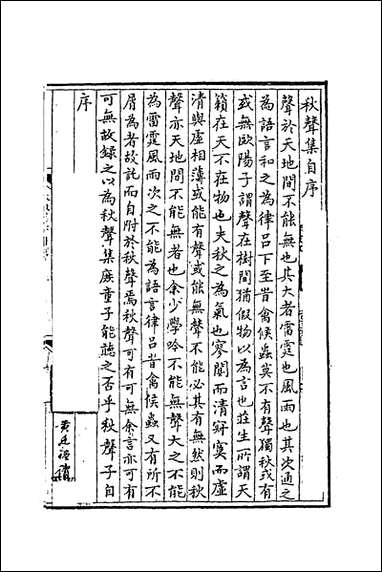 秋聲集自序
聲於天地間不能無也其大者雷霆也風雨也其次通之
為語言和之為律呂下至昔禽候蟲莫不有聲獨秋或有
或無歐陽子謂聲在樹間猶假物以為言也莊生所謂天
籟在天不在物也夫秋之為氣也寥閴而清寂寞而虛
清與虛相薄或能有聲或能無聲不能必其有無然則秋
聲亦天地間不能無者也余少學吟不能無聲大之不能
為雷霆風雨次之不能為語言律呂昔禽候蟲又有所不
屑為者故託而自附於秋聲焉秋聲可有可無余言亦可有
可無故錄之以為秋聲集庶童子能聽之否乎秋聲子自
序